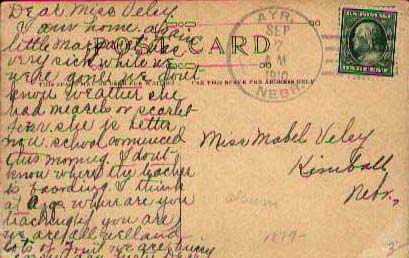 Dear Miss Veley
I am home as
little Marjorie is
very sick while we
were gone we don't
know weather she
had measels or scarlet
fever she is better
now school commenced
this morning. I don't
know where the teacher
is boarding I think
at where you are
teaching if you are
we are all well and
lots of fruit we are
POST CARD
THIS SPACE
USE THIS SPACE FOR ADDRESS ONLY
AYR.
SEP
7
AM
1910
NEBR.
U.S. POSTAGE
ONE CENT
Miss Mabel Veley
Kimball
Nebr.
album
1879-
3